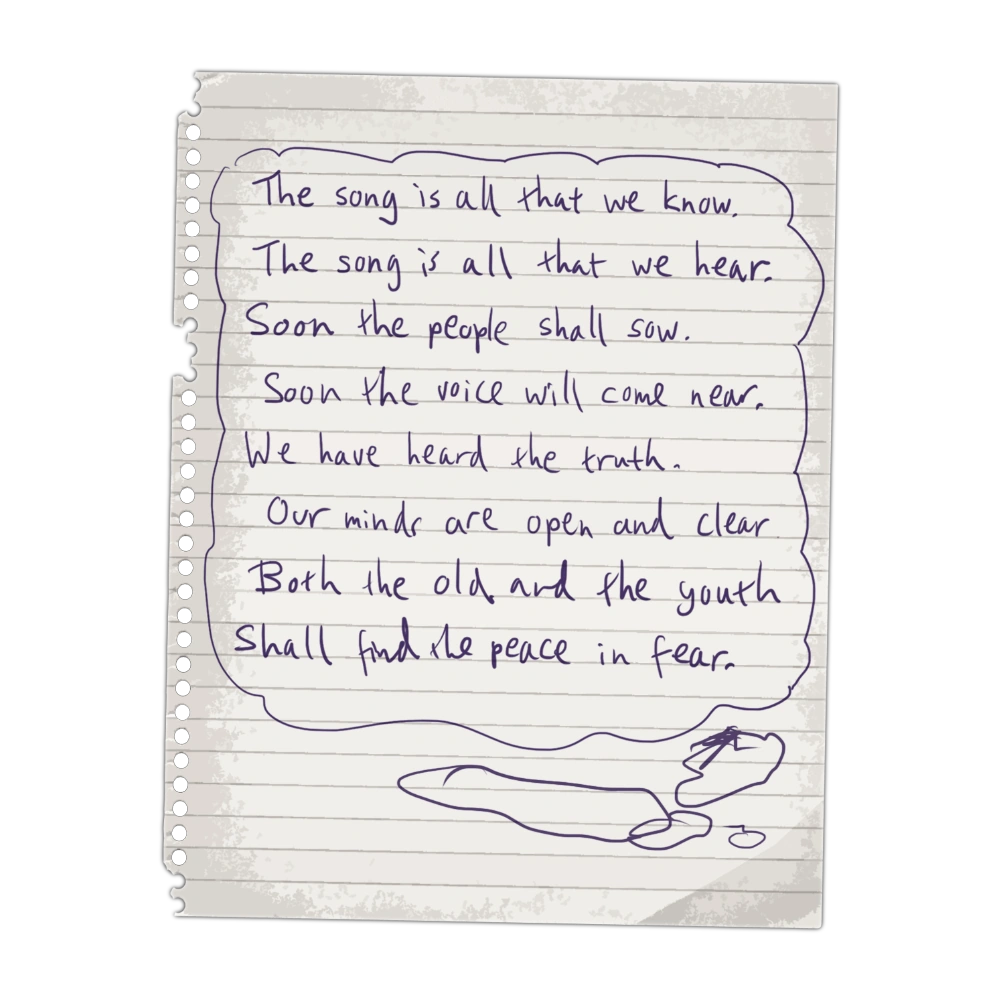 The song is all that we know.
The song is all that we hear.
Soon the people shall sow.
Soon the voice will come near.
We have heard the truth.
Our minds are open and clear.
Both the old and the youth
Shall find the peace in fear.